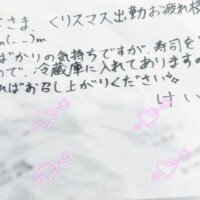 さま、くリスマス出勤お疲れ様
m(_ _)m
ばかりの気持ちですが、寿司を
ので、冷蔵庫に入れてありますの
ればお召し上がりください。
けい